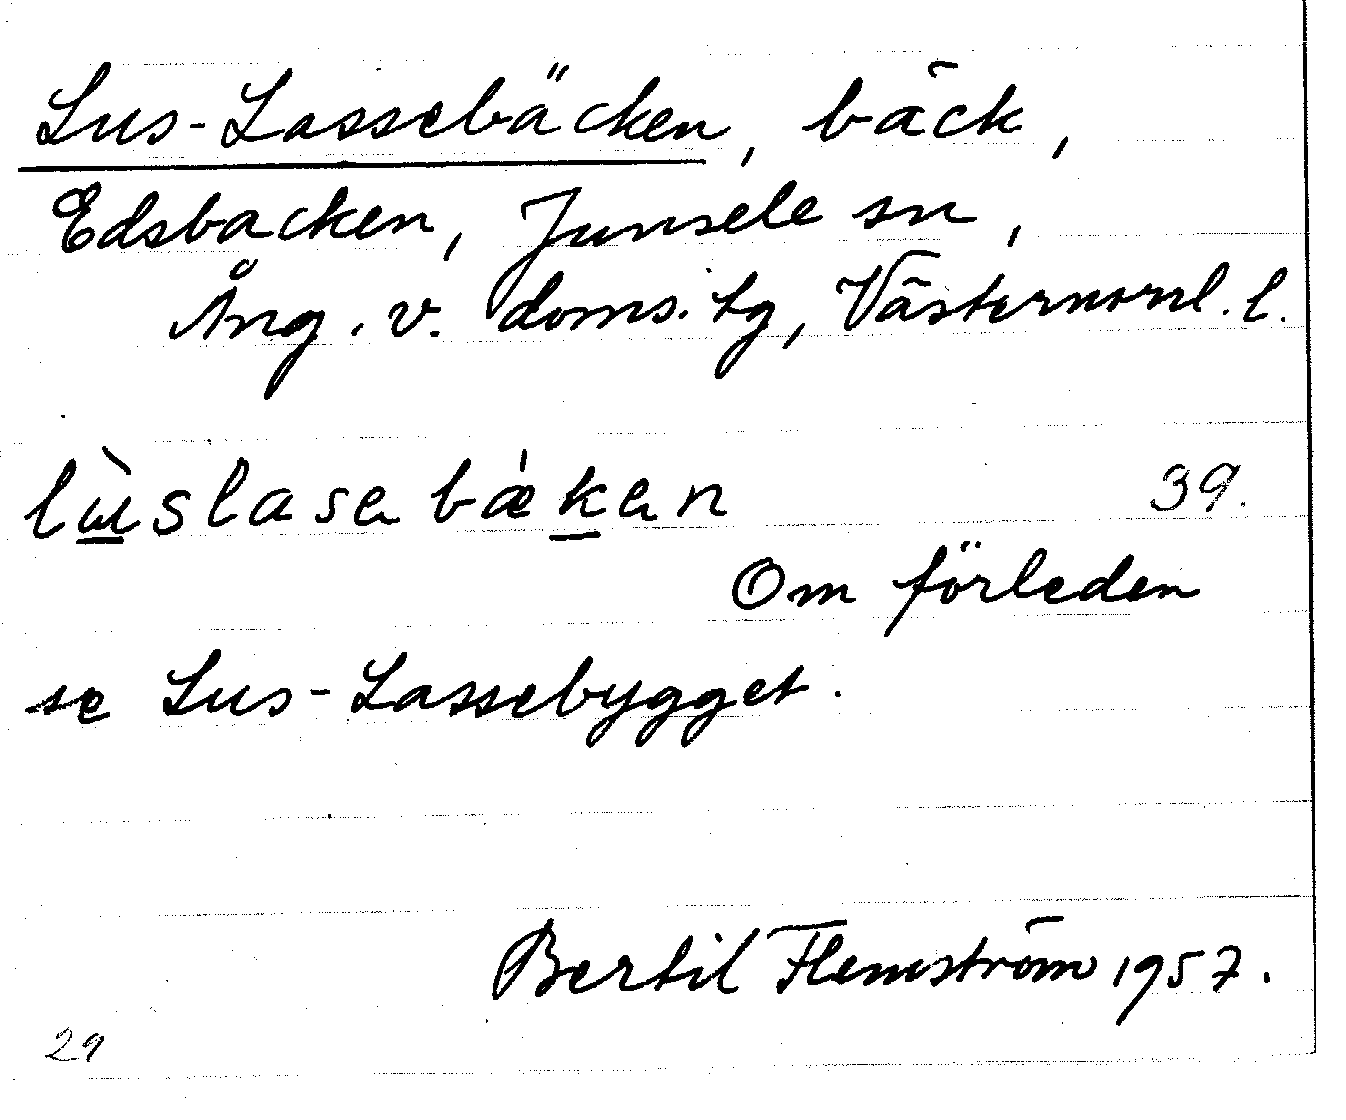 Lus-Lassebäcken, bäck,
Edsbacken, Junsele sn,
Ång. v. doms. tg, Västernorrl. l.
lùslasabǽkan 39.
Om förleden
se Lus-Lassebygget.
Bertil Flemström 1957.
29